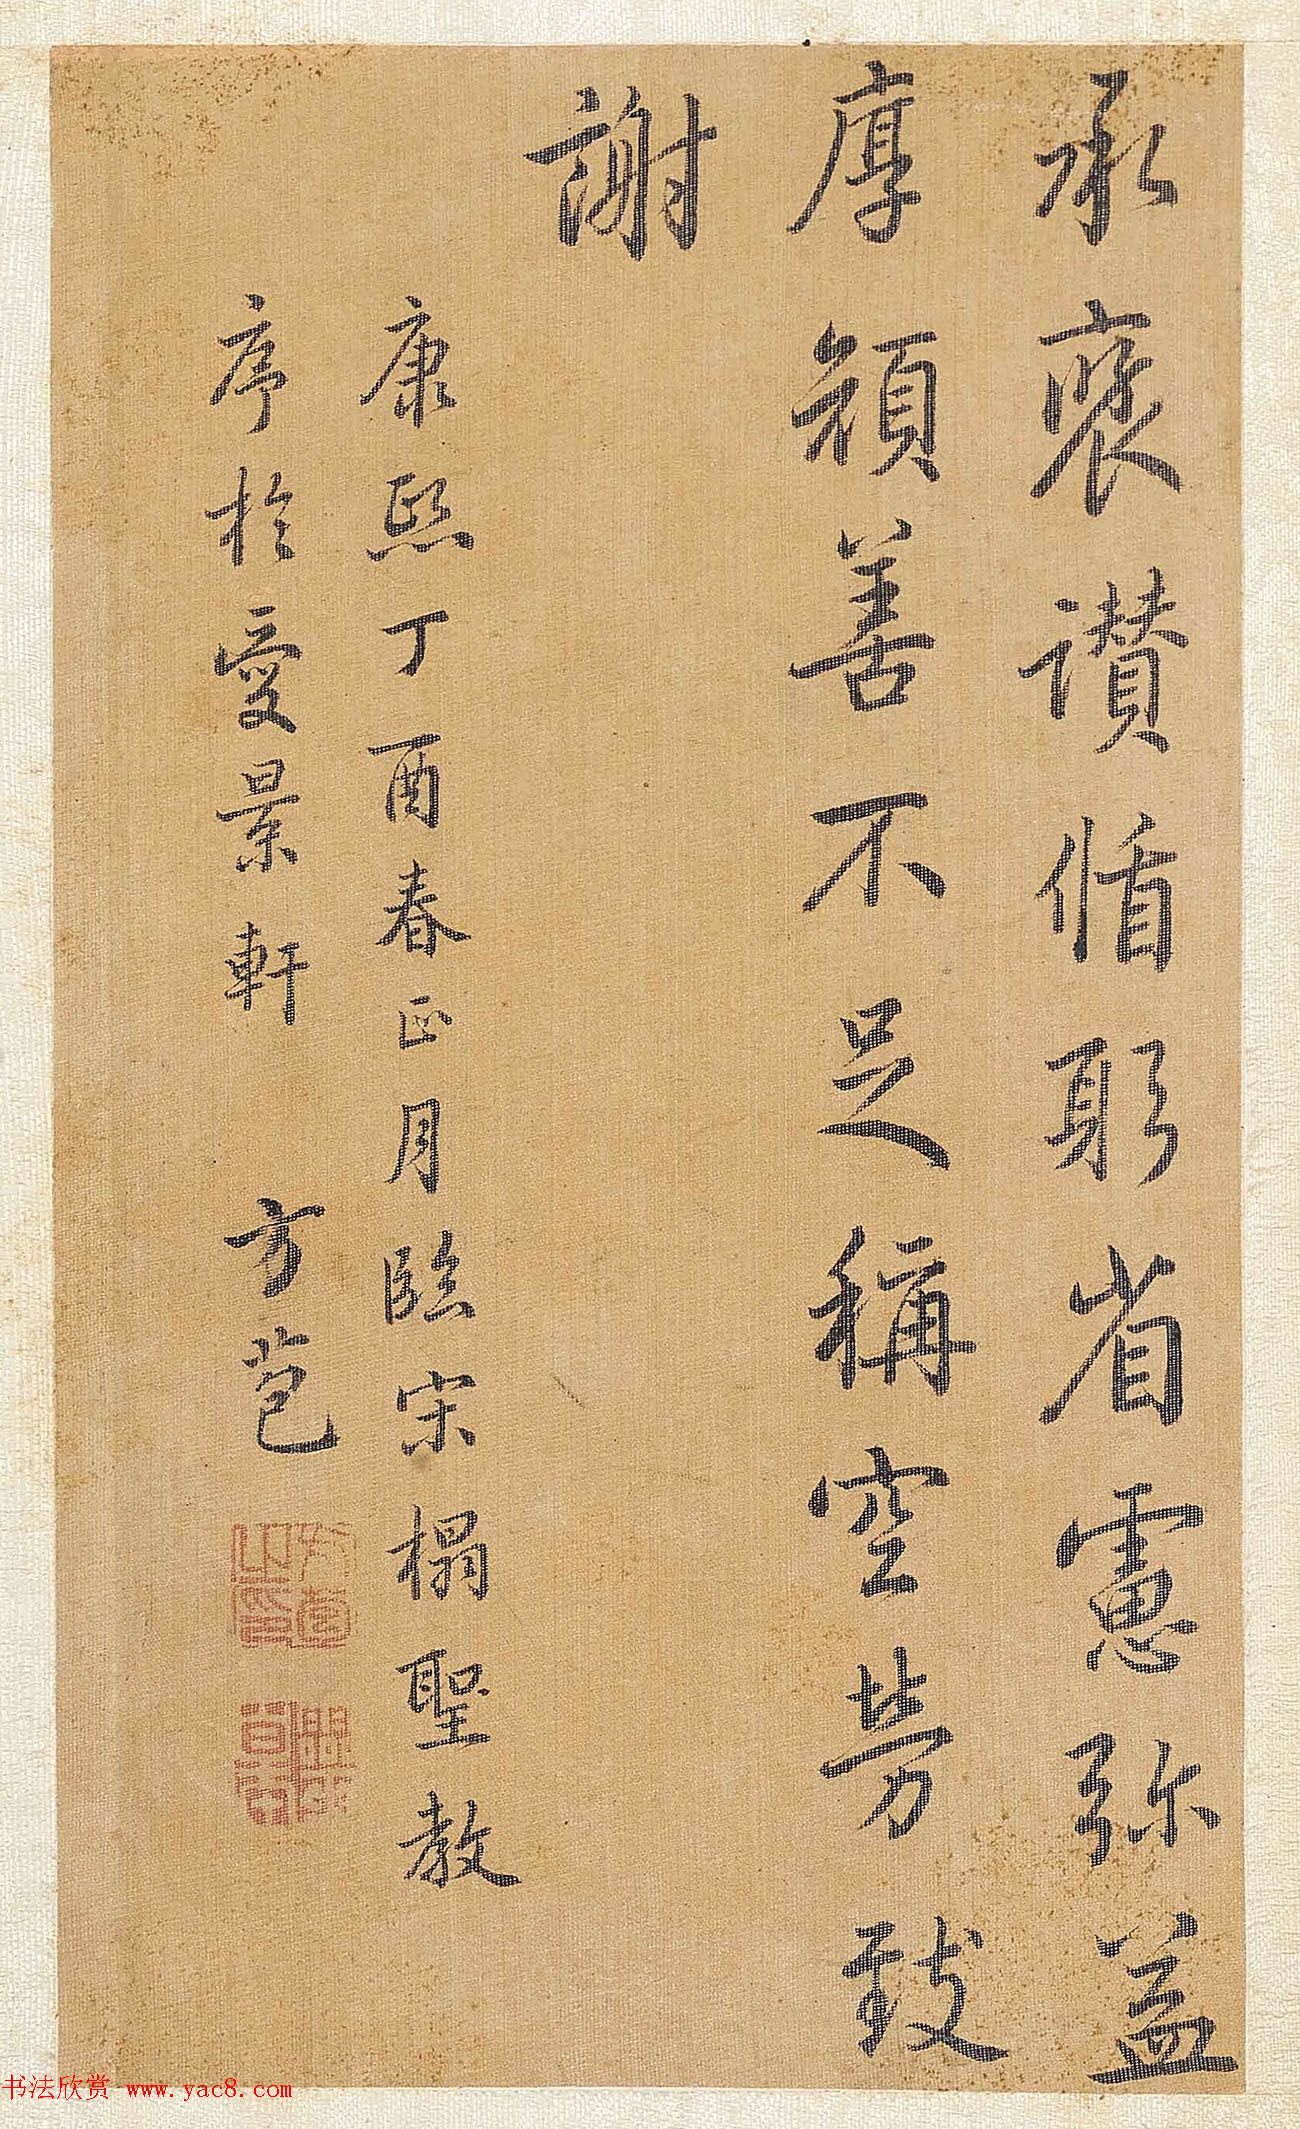 承褒讃循躬省慮弥益
厚顔善不足稱空勞致
謝
康熙丁酉春正月臨宋榻聖教
序於愛景軒 方苞
方苞之印
书法欣赏 www.yac8.com